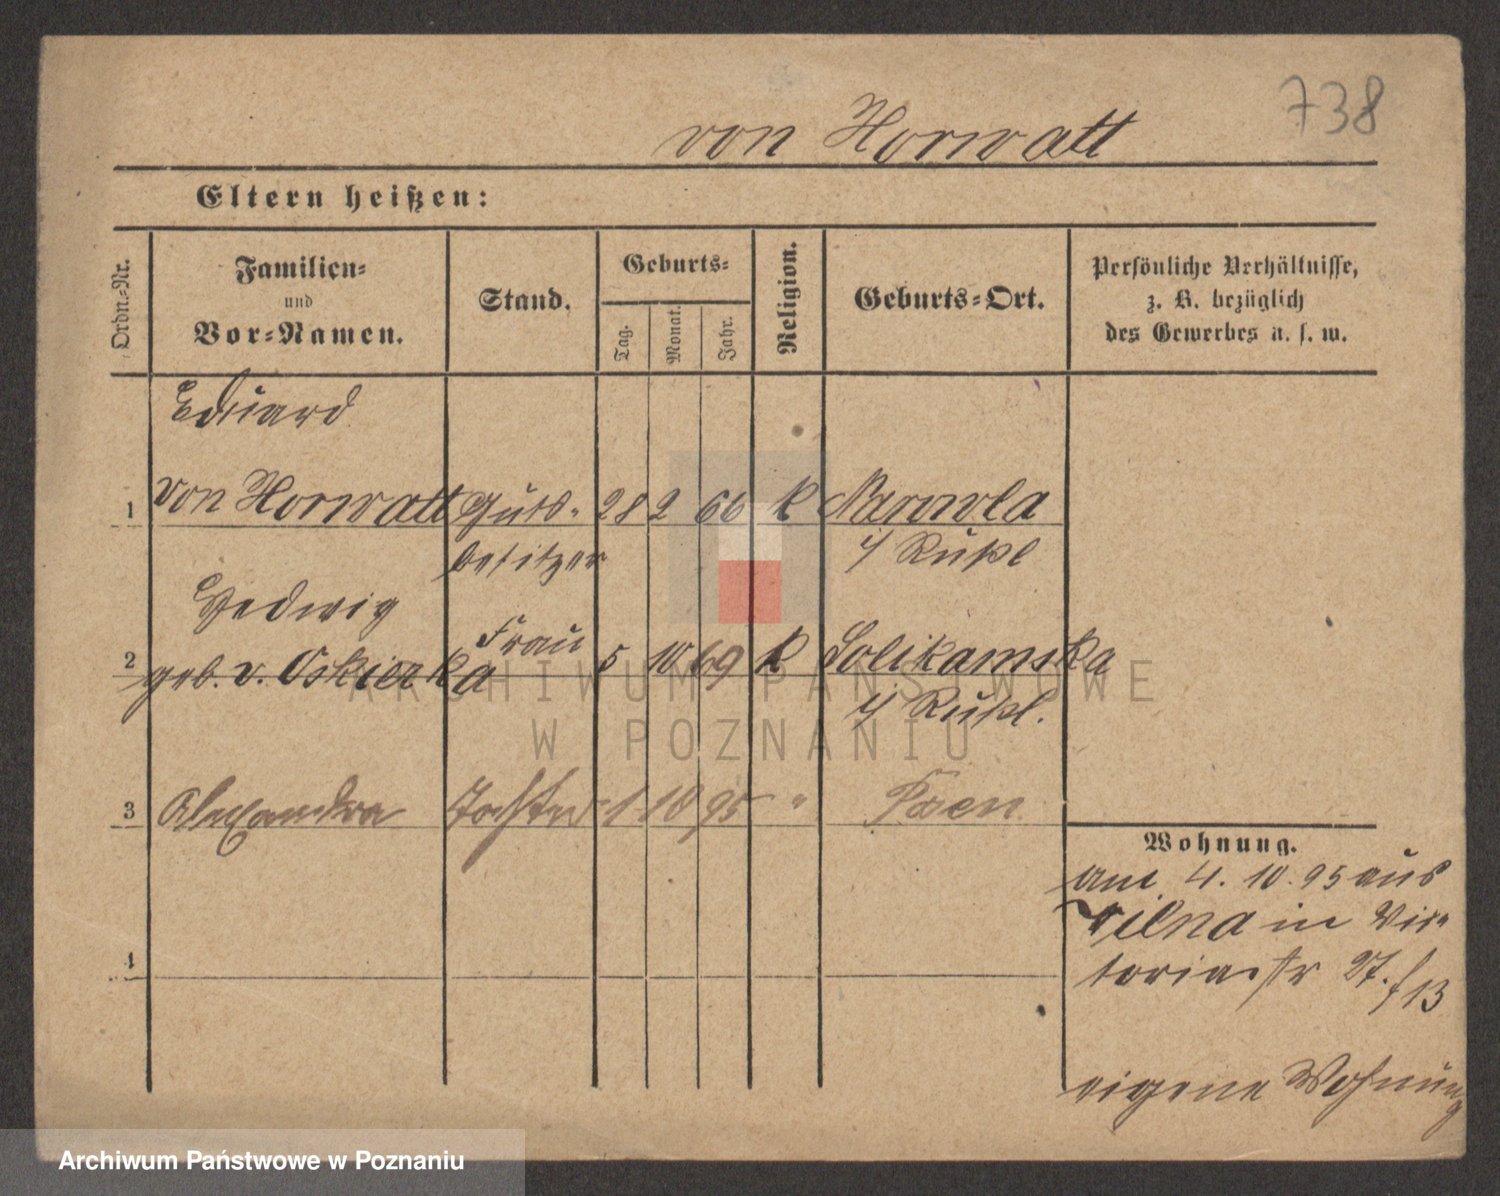 738
von Horwatt
Eltern heißen:
Ordn.-Nr.
Familien-
und
Vor-Namen.
Stand.
Geburts-
Tag.
Monat.
Jahr.
Religion.
Geburts-Ort.
Persönliche Verhältnisse,
z. B. bezüglich
des Gewerbes u. s. w.
Eduard
1 von Horwatt Guts- 28 2 66 k Narowla
besitzer i/ Rußl
Hedwig
Frau
2 geb. v. Oskierka 5 10 69 k Solikamska
i/ Rußl.
3 Alexandra Tochter 1 10 95 " Posen
Wohnung.
am 4. 10. 95 aus
Wilna in Vic-
toriastr 27. / 13
4
eigene Wohnung
ARCHIWUM PAŃSTWOWE
W POZNANIU
Archiwum Państwowe w Poznaniu